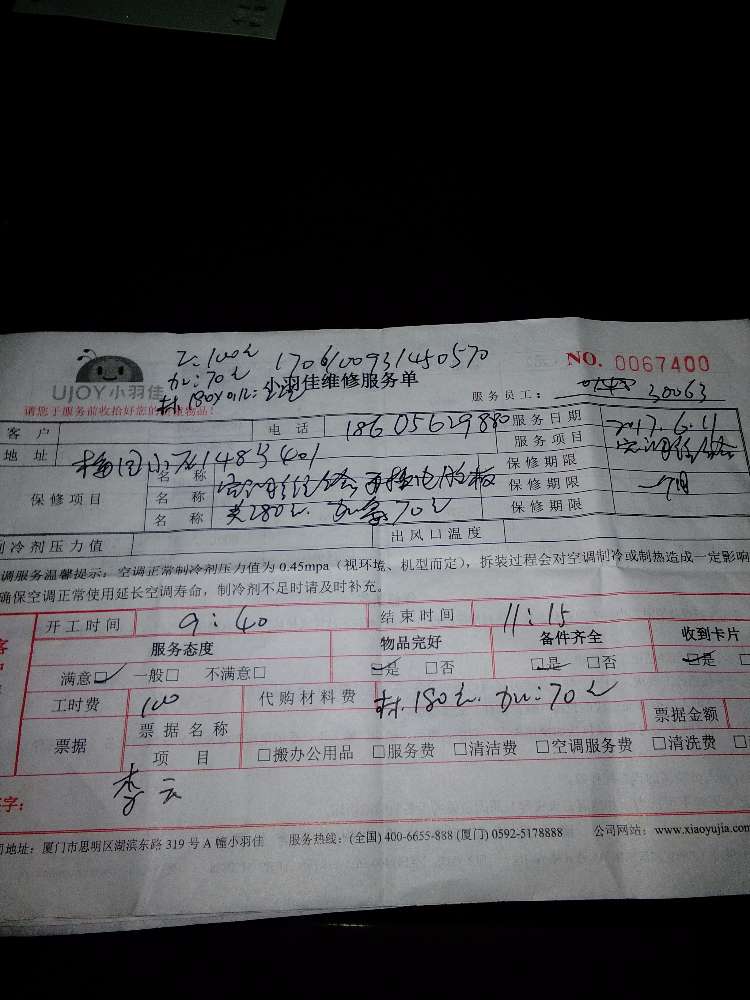 工:100元 1706100931450570 NO. 0067400
加:70元
UJOY小羽佳 小羽佳维修服务单
服务员工: 30063
请您于服务前收拾好您的 物品!
客 户 电 话 18605629880 服务日期 2017.6.11
地 址 梅园小区148号401 服务项目 空调维修
保修项目 名 称 保修期限
名 称 空调维修 电脑板 保修期限 一个月
名 称 共280元. 加氟70元 保修期限
制冷剂压力值 出风口温度
调服务温馨提示:空调正常制冷剂压力值为 0.45mpa(视环境、机型而定),拆装过程会对空调制冷或制热造成一定影响
确保空调正常使用延长空调寿命,制冷剂不足时请及时补充。
开工时间 9:40 结束时间 11:15
服务态度 物品完好 备件齐全 收到卡片
满意☑ 一般□ 不满意□ ☑是 □否 ☑是 □否 ☑是
工时费 100 代购材料费 材.180元. 加:70元
票据 票据名称 票据金额
项 目 □搬办公用品 □服务费 □清洁费 □空调服务费 □清洗费
字: 李云
司地址:厦门市思明区湖滨东路 319 号 A 幢小羽佳 服务热线:(全国) 400-6655-888 (厦门) 0592-5178888 公司网站:www.xiaoyujia.com